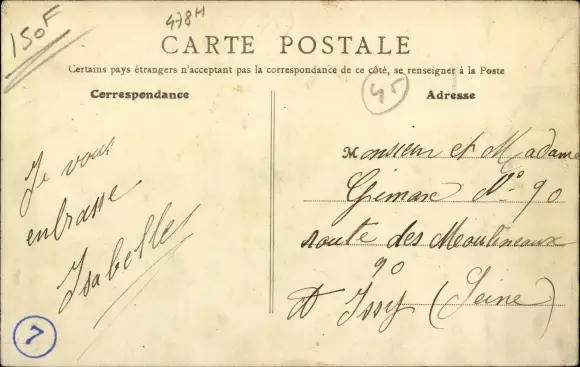 150F
478H
CARTE POSTALE
Certains pays étrangers n'acceptant pas la correspondance de ce côté, se renseigner à la Poste
45
Correspondance
Je vous
enbrasse
Isabelle
7
Adresse
Monsieur et Madame
Grimare No 90
route des Moulineaux
90
A Issy (Seine)